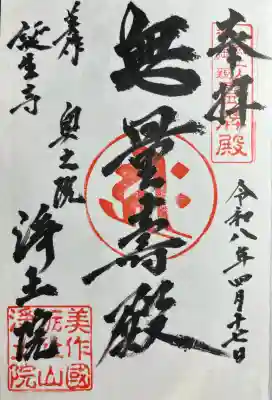 奉拝
令和八年四月十七日
無量壽殿
美作
誕生寺
奥之院
浄土院
美作國
山
浄土院